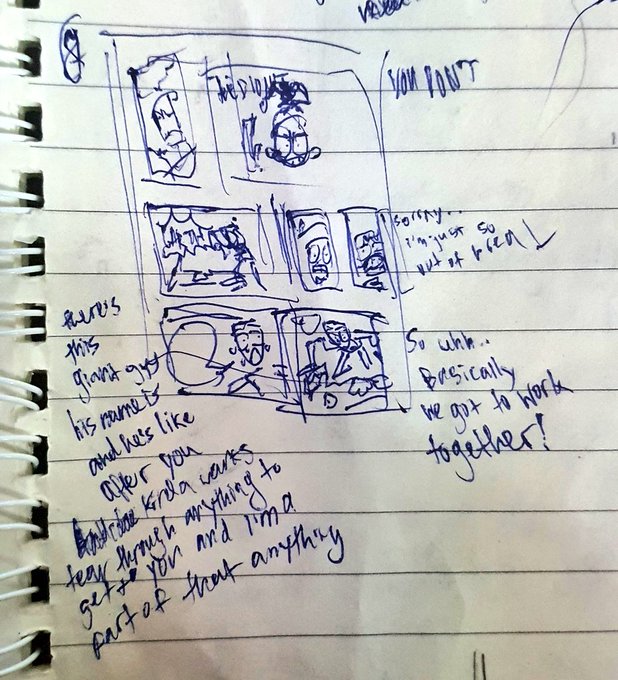 8
YOU DON'T
sorry..
i'm just so
out of
there's
this
giant guy
his name is
and he's like
after you
kinda wants
tear through anything to
get to you and I'm a
part of that anything
So uhh..
Basically
we got to work
together!